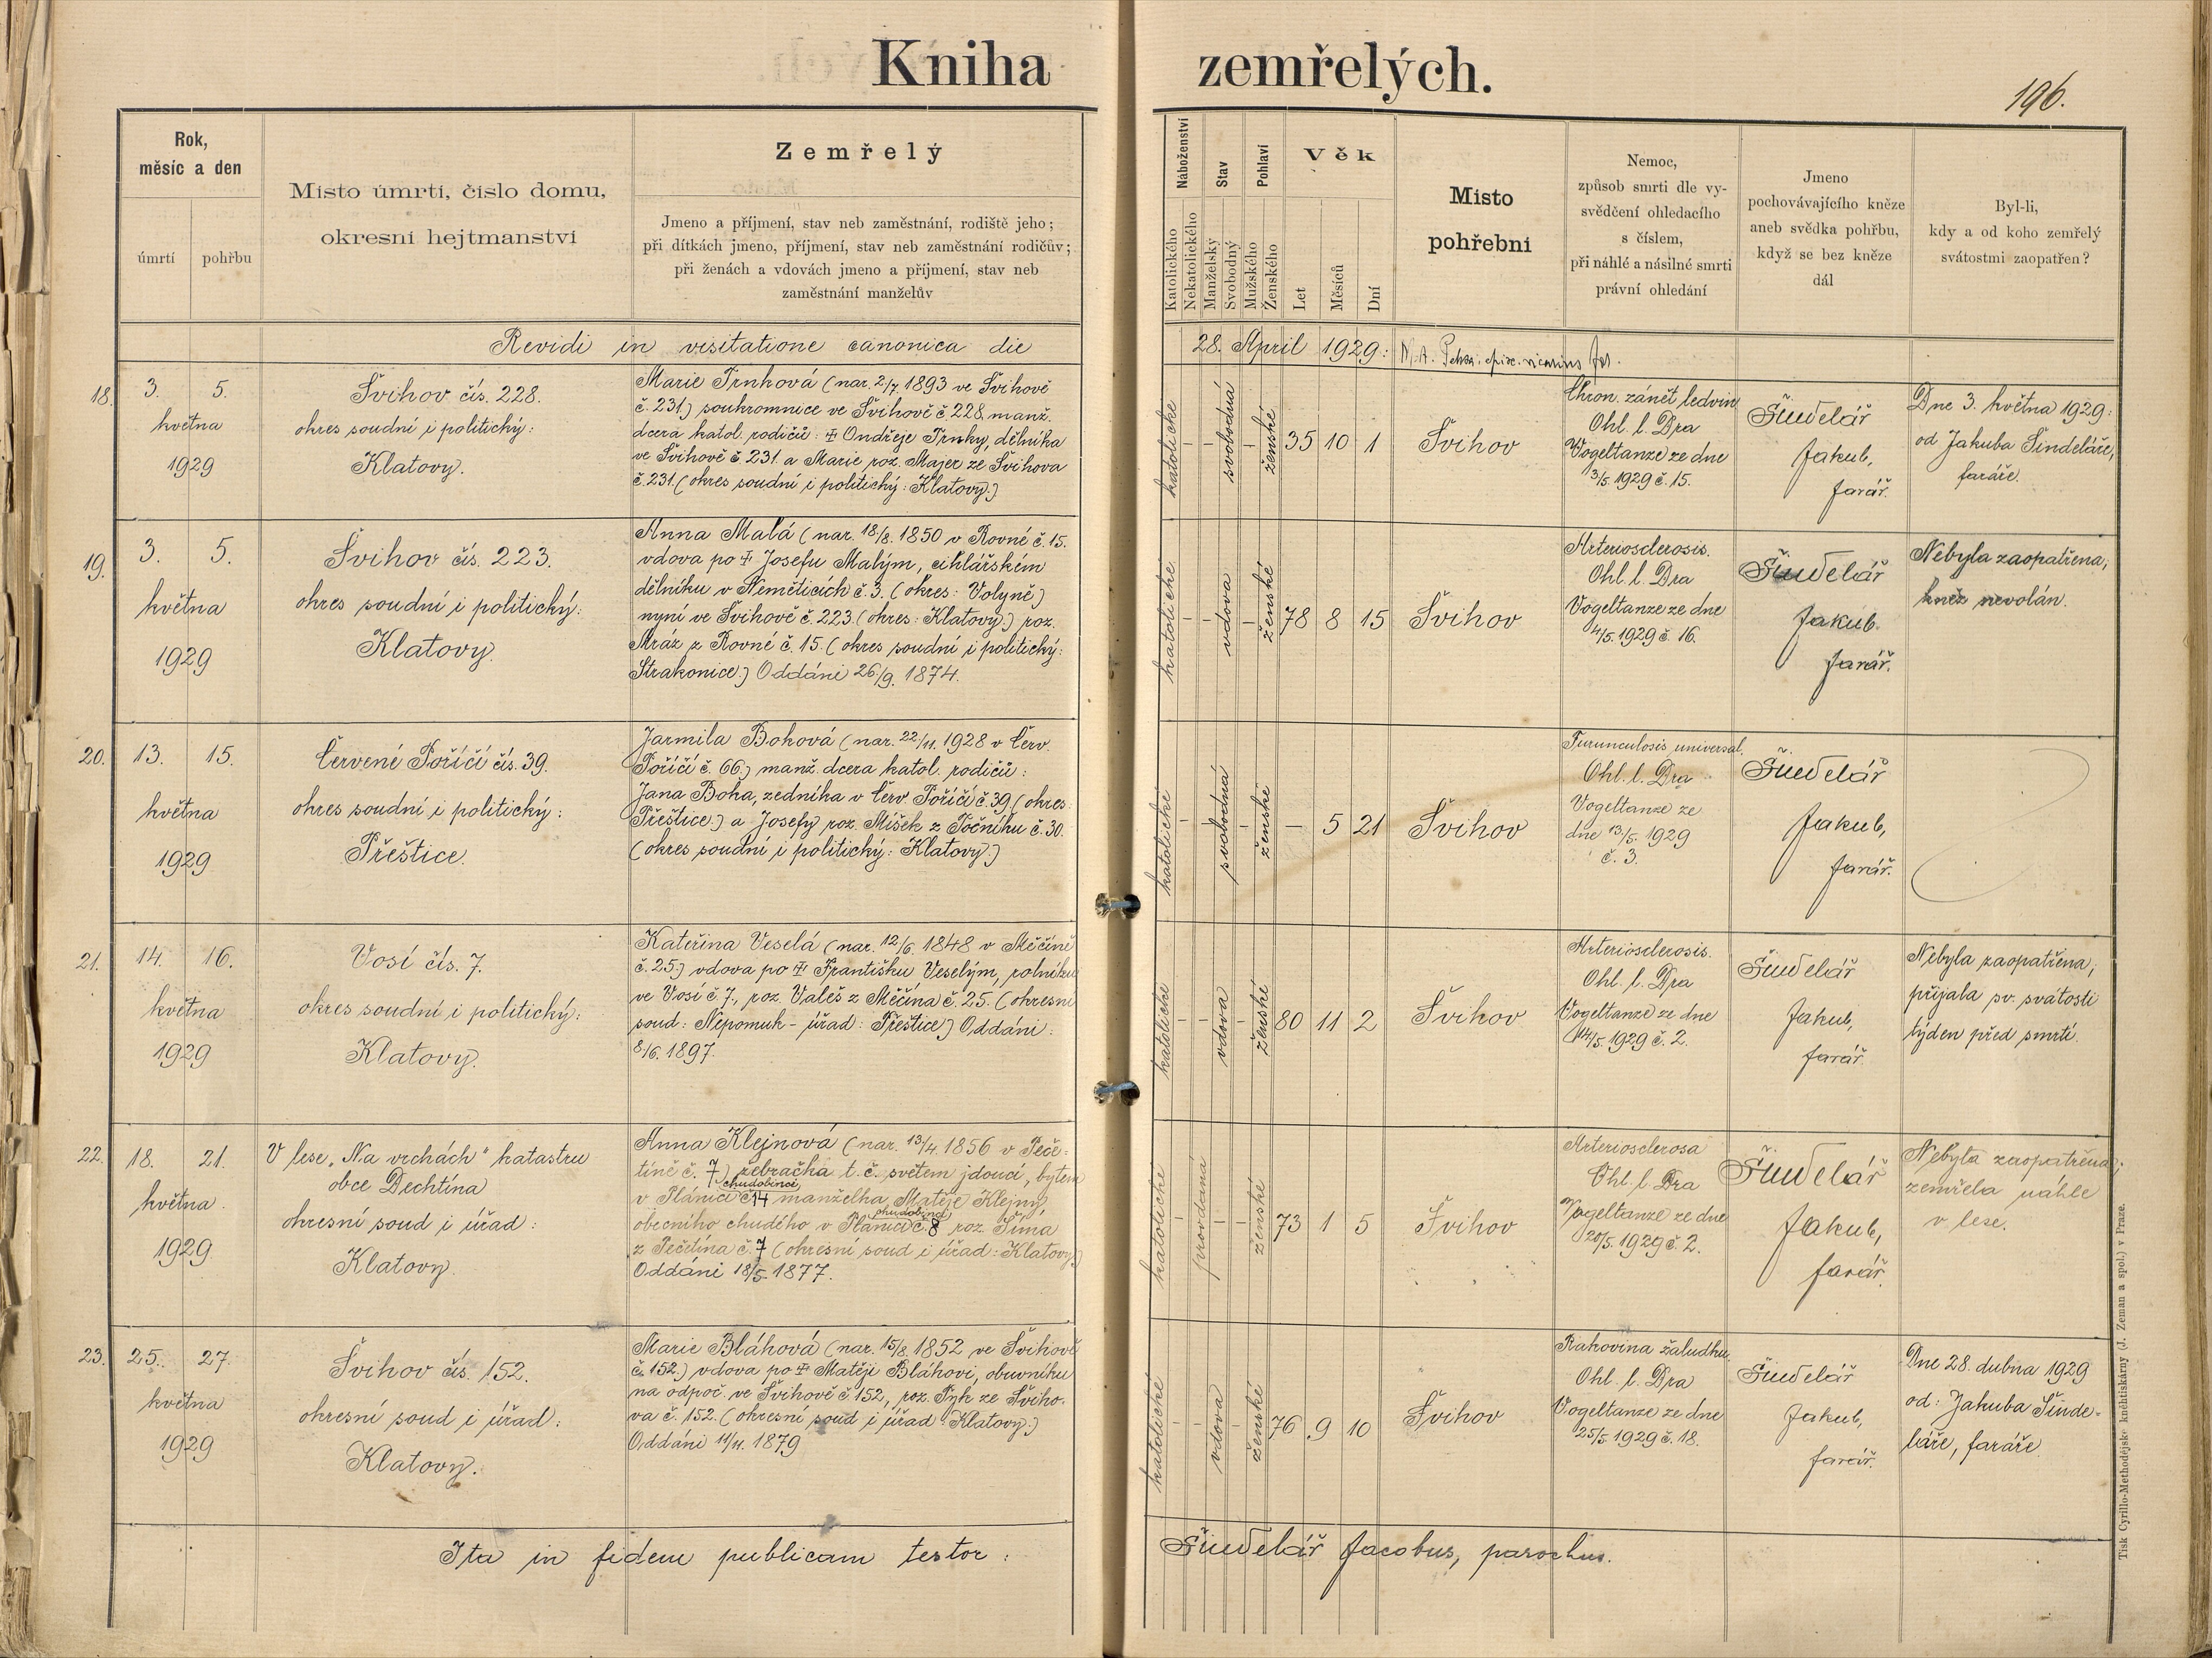 Kniha zemřelých.
196.
Rok,
měsíc a den
úmrtí
pohřbu
Místo úmrtí, číslo domu,
okresní hejtmanství
Zemřelý
Jmeno a příjmení, stav neb zaměstnání, rodiště jeho;
při dítkách jmeno, příjmení, stav neb zaměstnání rodičův;
při ženách a vdovách jmeno a příjmení, stav neb
zaměstnání manželův
Náboženství
Katolického
Nekatolického
Stav
Manželský
Svobodný
Pohlaví
Mužského
Ženského
Věk
Let
Měsíců
Dní
Místo
pohřební
Nemoc,
způsob smrti dle vy-
svědčení ohledacího
s číslem,
při náhlé a násilné smrti
právní ohledání
Jmeno
pochovávajícího kněze
aneb svědka pohřbu,
když se bez kněze
dál
Byl-li,
kdy a od koho zemřelý
svátostmi zaopatřen?
Revidi in visitatione canonica die 28. April 1929:
18.
3. 5.
května
1929
Švihov čís. 228.
okres soudní i politický:
Klatovy.
Marie Trnková (nar. 2/7 1893 ve Švihově
č. 231.) soukromnice ve Švihově č. 228. manž.
dcera katol. rodičů: † Ondřeje Trnky, dělníka
ve Švihově č. 231. a Marie roz. Majer ze Švihova
č. 231. (okres soudní i politický: Klatovy.)
katolické
-
-
svobodná
-
ženské
35 10 1
Švihov
Chron. zánět ledvin
Ohl. l. Dra
Vogeltanze ze dne
3/5. 1929 č. 15.
Šindelář
Jakub,
farář.
Dne 3. května 1929:
od Jakuba Šindeláře,
faráře.
19.
3. 5.
května
1929
Švihov čís. 223.
okres soudní i politický:
Klatovy.
Anna Malá (nar. 18/8. 1850 v Rovné č. 15.
vdova po † Josefu Malým, cihlářském
dělníku v Němětících č. 3. (okres: Volyně)
nyní ve Švihově č. 223. (okres: Klatovy.) roz.
Mráz z Rovné č. 15. (okres soudní i politický:
Strakonice.) Oddáni 26/9. 1874.
katolické
-
-
vdova
-
ženské
78 8 15
Švihov
Arteriosclerosis.
Ohl. l. Dra
Vogeltanze ze dne
4/5. 1929 č. 16.
Šindelář
Jakub.
farář.
Nebyla zaopatřena,
kněz nevolán.
20.
13. 15.
května
1929
Červené Poříčí čís. 39.
okres soudní i politický:
Přeštice.
Jarmila Boková (nar. 22/11. 1928 v Červ.
Poříčí č. 66.) manž. dcera katol. rodičů:
Jana Boka, zedníka v Červ. Poříčí č. 39. (okres:
Přeštice.) a Josefy roz. Míšek z Točníku č. 30.
(okres soudní i politický: Klatovy.)
katolické
-
-
svobodná
-
ženské
- 5 21
Švihov
Furunculosis universal.
Ohl. l. Dra
Vogeltanze ze
dne 13/5. 1929
č. 3.
Šindelář
Jakub,
farář.
21.
14. 16.
května
1929
Vosí čís. 7.
okres soudní i politický:
Klatovy.
Kateřina Veselá (nar. 12/6. 1848 v Měčíně
č. 25.) vdova po † Františku Veselým, rolníku
ve Vosí č. 7., roz. Valeš z Měčína č. 25. (okresní
soud: Nepomuk - úřad: Přeštice) Oddáni:
8/6. 1897.
katolické
-
-
vdova
-
ženské
80 11 2
Švihov
Arteriosclerosis.
Ohl. l. Dra
Vogeltanze ze dne
14/5. 1929 č. 2.
Šindelář
Jakub,
farář.
Nebyla zaopatřena,
přijala sv. svátosti
týden před smrtí.
22.
18. 21.
května
1929.
V lese „Na vrchách“ katastru
obce Dechtína
okresní soud i úřad:
Klatovy.
Anna Klejnová (nar. 13/4. 1856 v Peče-
tíně č. 7) žebračka t. č. světem jdoucí, bytem
chudobinci
v Plánici č 14 manželka Matěje Klejny,
chudobinci
obecního chudého v Plánici č. 8 roz. Šíma
z Pečetína č. 7 (okresní soud i úřad: Klatovy.)
Oddáni 18/5. 1877.
katolické
-
provdaná
-
-
ženské
73 1 5
Švihov
Arteriosclerosa
Ohl. l. Dra
Vogeltanze ze dne
20/5. 1929 č. 2.
Šindelář
Jakub,
farář.
Nebyla zaopatřena;
zemřela náhle
v lese.
23.
25. 27.
května
1929
Švihov čís. 152.
okresní soud i úřad:
Klatovy.
Marie Bláhová (nar. 15/8. 1852 ve Švihově
č. 152.) vdova po † Matěji Bláhovi, obuvníku
na odpoč. ve Švihově č 152, roz. Pyk ze Šviho-
va č. 152. (okresní soud i úřad: Klatovy.)
Oddáni 11/11. 1879
katolické
-
-
vdova
-
ženské
76 9 10
Švihov
Rakovina žaludku.
Ohl. l. Dra
Vogeltanze ze dne
25/5 1929 č. 18.
Šindelář
Jakub,
farář.
Dne 28. dubna 1929
od: Jakuba Šinde-
láře, faráře
Ita in fidem publicam testor: Šindelář Jacobus, parochus.
Tisk Cyrillo-Methodějské knihtiskárny (J. Zeman a spol.) v Praze.